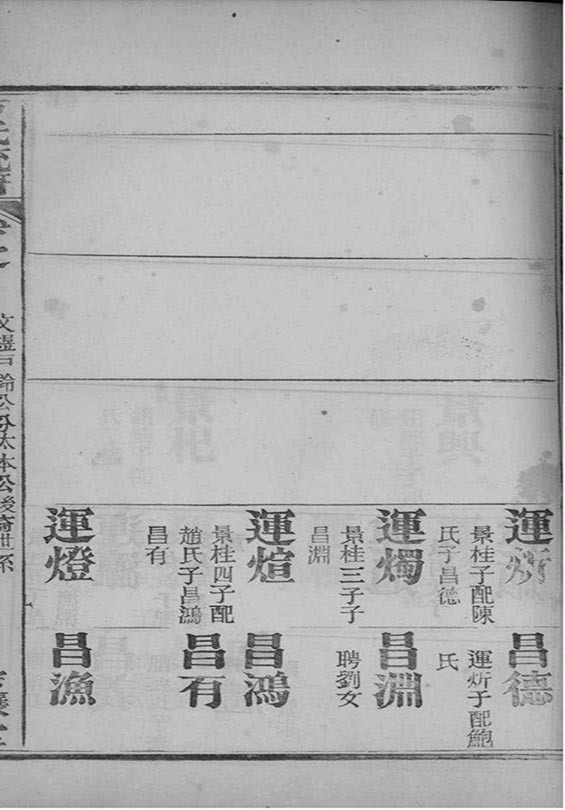 運炘
景桂子配陳
氏子昌德
運燭
景桂三子子
昌淵
運煊
景桂四子配
趙氏子昌鴻
昌有
運燈
昌德
運炘子配鮑
氏
昌淵
聘劉女
昌鴻
昌有
昌漁
公後裔世系